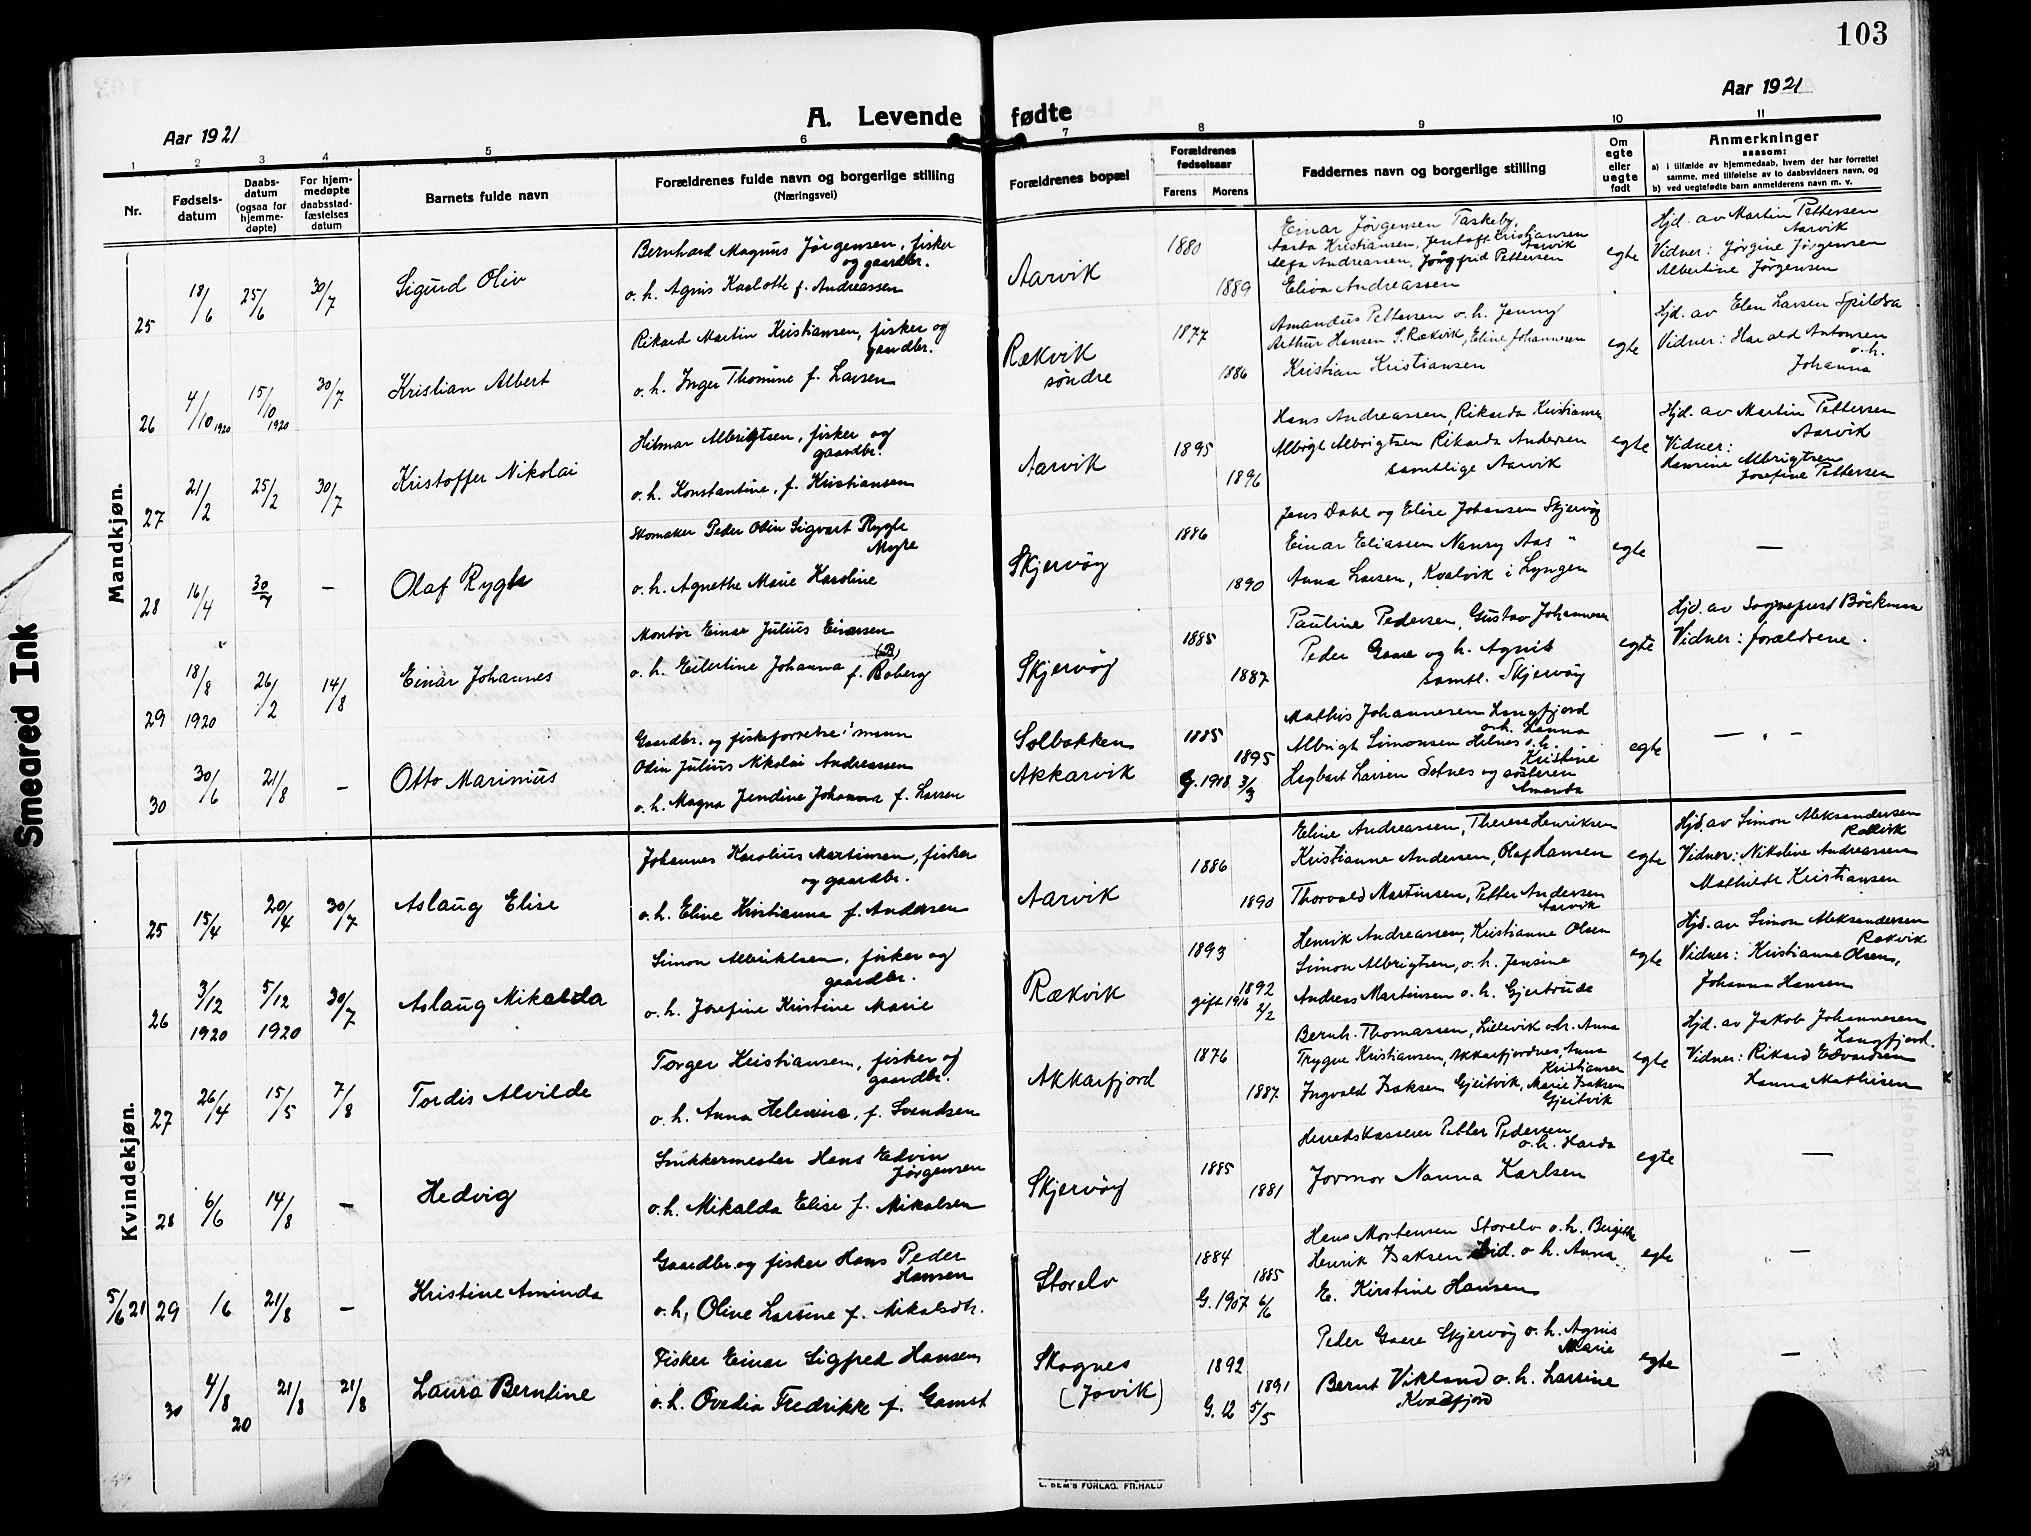 103
Aar 1921
Aar 1921
A. Levende fødte
1 2 3 4 5 6 7 8 9 10 11
Nr.
Fødsels-
datum
Daabs-
datum
(ogsaa for
hjemme-
døpte)
For hjem-
medøpte
daabsstad-
fæstelses
datum
Barnets fulde navn
Forældrenes fulde navn og borgerlige stilling
(Næringsvei)
Forældrenes bopæl
Forældrenes
fødselsaar
Farens Morens
Faddernes navn og borgerlige stilling
Om
egte
eller
uegte
født
Anmerkninger
saasom:
a) i tilfælde av hjemmedaab, hvem der har forrettet
samme, med tilføielse av to daabsvidners navn, og
b) ved uegtefødte barn anmelderens navn m. v.
Mandkjøn.
25 18/6 25/6 30/7 Sigurd Oliv
Bernhard Magnus Jørgensen, fisker
og gaardbr.
o. h. Agnis Karlotte f. Andreassen
Aarvik
1880
1889
Einar Jørgensen Taskeby,
Aasta Kristiansen, Jentoft Kristiansen
Alfa Andreassen, Jöngfrid Pettersen Aarvik
Eliva Andreassen
egte
Hjd. av Martin Pettersen
Aarvik
Vidner: Jørgine Jørgensen
Albertine Jørgensen
26 4/10 1920 15/10 1920 30/7 Kristian Albert
Rikard Martin Kristiansen, fisker og
gaardbr.
o. h. Inger Thomine f. Larsen
Rækvik
søndre
1877
1886
Amandus Pettersen o. h. Jenny
Arthur Hansen S. Rækvik, Eline Johannesen
Kristian Kristiansen
egte
Hjd. av Elen Larsen Spildra
Vidner: Harald Antonsen
o. h.
Johanna
27 21/2 25/2 30/7 Kristoffer Nikolai
Hilmar Albrigtsen, fisker og
gaardbr.
o. h. Konstantine, f. Kristiansen
Aarvik
1895
1896
Hans Andreassen, Rikarda Kristiansen
Albrigt Albrigtsen Rikarda Andersen
samtlige Aarvik
egte
Hjd. av Martin Pettersen
Aarvik
Vidner:
Albrigtsen
Josefine Pettersen
28 16/4 30/7 — Olaf Rygh
Skomaker Peder Odin Sigvart Rygh
Myre
o. h. Agnethe Marie Karoline
Skjervøy
1886
1890
Jens Dahl og Elise Johansen Skjervøy
Einar Eliassen Nanny Aas "
Anna Larsen, Kvalvik i Lyngen
egte
—
29 18/8 1920 26/12 14/8 Einar Johannes
Montør Einar Julius Einarsen
o. h. Eilertine Johanna f. Boberg (B)
Skjervøy
1885
1887
Pauline Pedersen, Gustav Johannesen
Peder Gaare og h. Agnis
samtl. Skjervøy
egte
Hjd. av Sogneprest Böckman
Vidner: forældrene.
30 30/6 21/8 — Otto Marinius
Gaardbr. og fiskeforretn.mann
Odin Julius Nikolai Andreassen
o. h. Magna Jendine Johanna f. Larsen
Solbakken
Akkarvik
1885
1895
G. 1918 3/3
Mathis Johannesen Langfjord
o. h. Hanna
Albrigt Simonsen Hilnes o. h.
Kristine
Hagbart Larsen Sotnes og søsteren
Amanda
egte
— " —
Kvindekjøn.
25 15/4 20/4 30/7 Aslaug Elise
Johannes Karolius Martinsen, fisker
og gaardbr.
o. h. Eline Kristianna f. Andersen
Aarvik
1886
1890
Eline Andreassen, Therese Henriksen
Kristianne Andersen, Olaf Hansen
Thorvald Martinsen, Petter Andersen
Aarvik
egte
Hjd. av Simon Aleksandersen
Rækvik
Vidner: Nikoline Andreassen
Mathilde Kristiansen
26 3/12 1920 5/12 1920 30/7 Aslaug Mikalda
Simon Albriktsen, fisker og
gaardbr.
o. h. Josefine Kristine Marie
Rækvik
1893
1892
gift 1916 2/2
Henrik Andreassen, Kristianne Olsen
Simon Albrigtsen, o. h. Jensine
Andreas Martinsen o. h. Gjertrude
egte
Hjd. av Simon Aleksandersen
Rækvik
Vidner: Kristianne Olsens,
Johanna Hansen
27 26/4 15/5 7/8 Tordis Alvilde
Torger Kristiansen, fisker og
gaardbr.
o. h. Anna Helenine, f. Svendsen
Akkarfjord
1876
1887
Bernh. Thomassen, Lillevik o. h. Anna
Trygve Kristiansen, Akkarfjordnes, Anna
Kristiansen
Ingvald Isaksen Gjeitvik, Marie Isaksen
Gjeitvik
egte
Hjd. av Jakob Johannesen
Langfjord.
Vidner: Rikard Edvardsen
Hanna Mathisen
28 6/6 14/8 — Hedvig
Snikkermester Hans Edvin
Jørgensen
o. h. Mikalda Elise f. Mikalsen
Skjervøy
1885
1881
Herredskasserer Petter Pedersen
o. h. Harda
Jormor Nanna Karlsen
egte
—
5/6 21 29 1/6 21/8 — Kristine Aminda
Gaardbr. og fisker Hans Peder
Hansen
o. h. Oline Larsine f. Mikalsdtr.
Storelv
1884
1885
G. 1907 6/6
Hans Mortensen Storelv o. h. Bergitte
Henrik Isaksen ibid. o. h. Anna
E. Kirstine Hansen
egte
—
30 4/8 20 21/8 21/8 Laura Berntine
Fisker Einar Sigfred Hansen
o. h. Ovedia Fredrikke f. Gamst
Skognes
(Jøvik)
1892
1891
G. 12 5/5
Peder Gaare Skjervøy o. h. Agnis
Marie
Bernt Vikland o. h. Larsine
Kvæfjord
egte
—
Smeared Ink
E. SEM'S FORLAG. FR.HALD